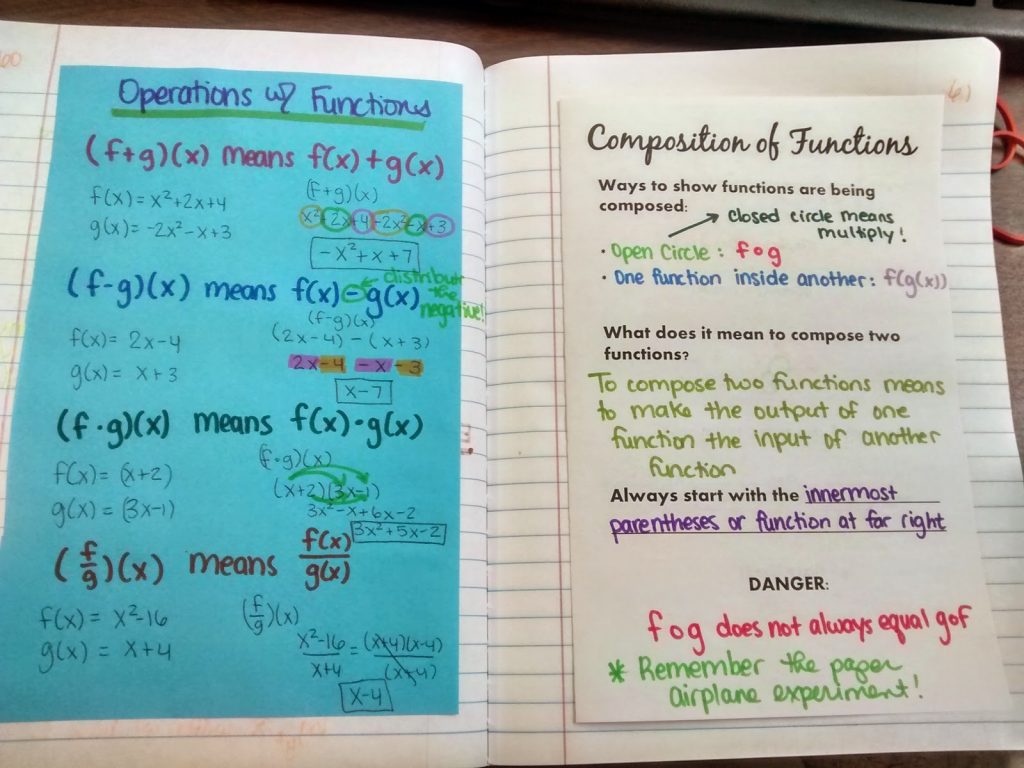 Operations w/ Functions
(f+g)(x) means f(x)+g(x)
f(x)=x²+2x+4
g(x)=-2x²-x+3
(f+g)(x)
x²+2x+4-2x²-x+3
-x²+x+7
(f-g)(x) means f(x)-g(x)
distribute
the
negative!
f(x)= 2x-4
g(x)= x+3
(f-g)(x)
(2x-4)-(x+3)
2x-4 -x-3
x-7
(f·g)(x) means f(x)·g(x)
f(x)=(x+2)
g(x)=(3x-1)
(f·g)(x)
(x+2)(3x-1)
3x²-x+6x-2
3x²+5x-2
(f/g)(x) means f(x)/g(x)
f(x)= x²-16
g(x)= x+4
(f/g)(x)
x²-16/x+4 = (x+4)(x-4)/(x+4)
x-4
61
Composition of Functions
Ways to show functions are being
composed:
closed circle means
multiply!
· Open Circle: f∘g
· One function inside another: f(g(x))
What does it mean to compose two
functions?
To compose two functions means
to make the output of one
function the input of another
function
Always start with the innermost
parentheses or function at far right
DANGER:
f∘g does not always equal g∘f
* Remember the paper
airplane experiment!